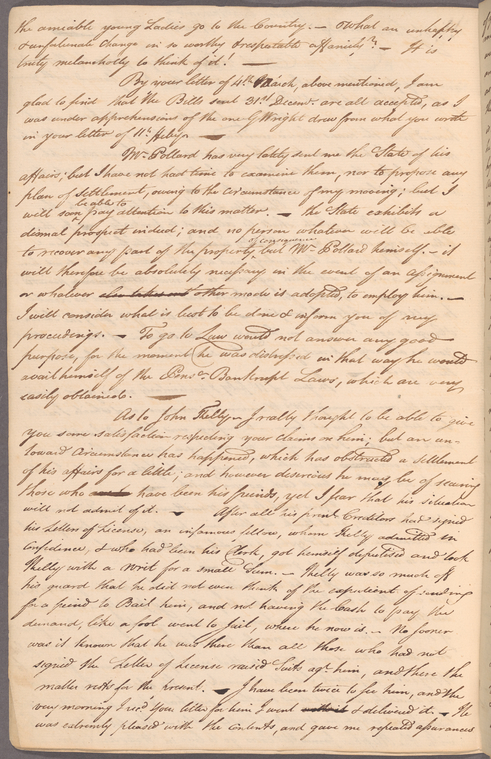 the amiable young Ladies go to the Country. — What an unhappy
& unfortunate change in so worthy & respectable a Family! — It is
truly melancholly to think of it! —
By your letter of 4th March, above mentioned, I am
glad to find that the Bills sent 31st Decemr. are all accepted, as I
was under apprehensions of the one G Wright drew from what you wrote
in your letter of 11th Feby. —
Mr. Pollard has very lately sent me the State of his
affairs; but I have not had time to examine them, nor to propose any
plan of settlement, owing to the circumstance of my moving; but I
will soon be able to pay attention to this matter. — the State exhibits a
dismal prospect indeed; and no person whatever will be able
to recover any part of the property, of consequence, but Mr. Pollard himself. — it
will therefore be absolutely necessary in the event of an assignment
or whatever other mode is adopted, to employ him. —
I will consider what is best to be done & inform you of my
proceedings. — To go to Law would not answer any good
purpose, for the moment he was distressed in that way he would
avail himself of the Pensa. Bankrupt Laws, which are very
easily obtained. —
As to John Kelly — I really thought to be able to give
You some satisfaction respecting your claims on him; but an un-
toward Circumstance has happened, which has obstructed a settlement
of his affairs for a little; and however desirous he may be of securing
those who have been his friends, yet I fear that his situation
will not admit of it. — After all his princl. Creditors had signed
his Letter of License, an infamous fellow, whom Kelly admitted in
Confidence, & who had been his Clerk, got himself deputised and took
Kelly with a Writ for a small Sum. — Kelly was so much off
his guard that he did not even think of the expedient of sending
for a friend to Bail him, and not having the Cash to pay the
demand, like a fool went to Jail, where he now is. — No sooner
was it known that he was there than all those who had not
signed the Letter of License raised Suits agt. him, and there the
matter rests for the present. — I have been twice to see him, and the
very morning I recd. Your letter for him I went & delivered it. — He
was extremely pleased with the contents, and gave me repeated assurances